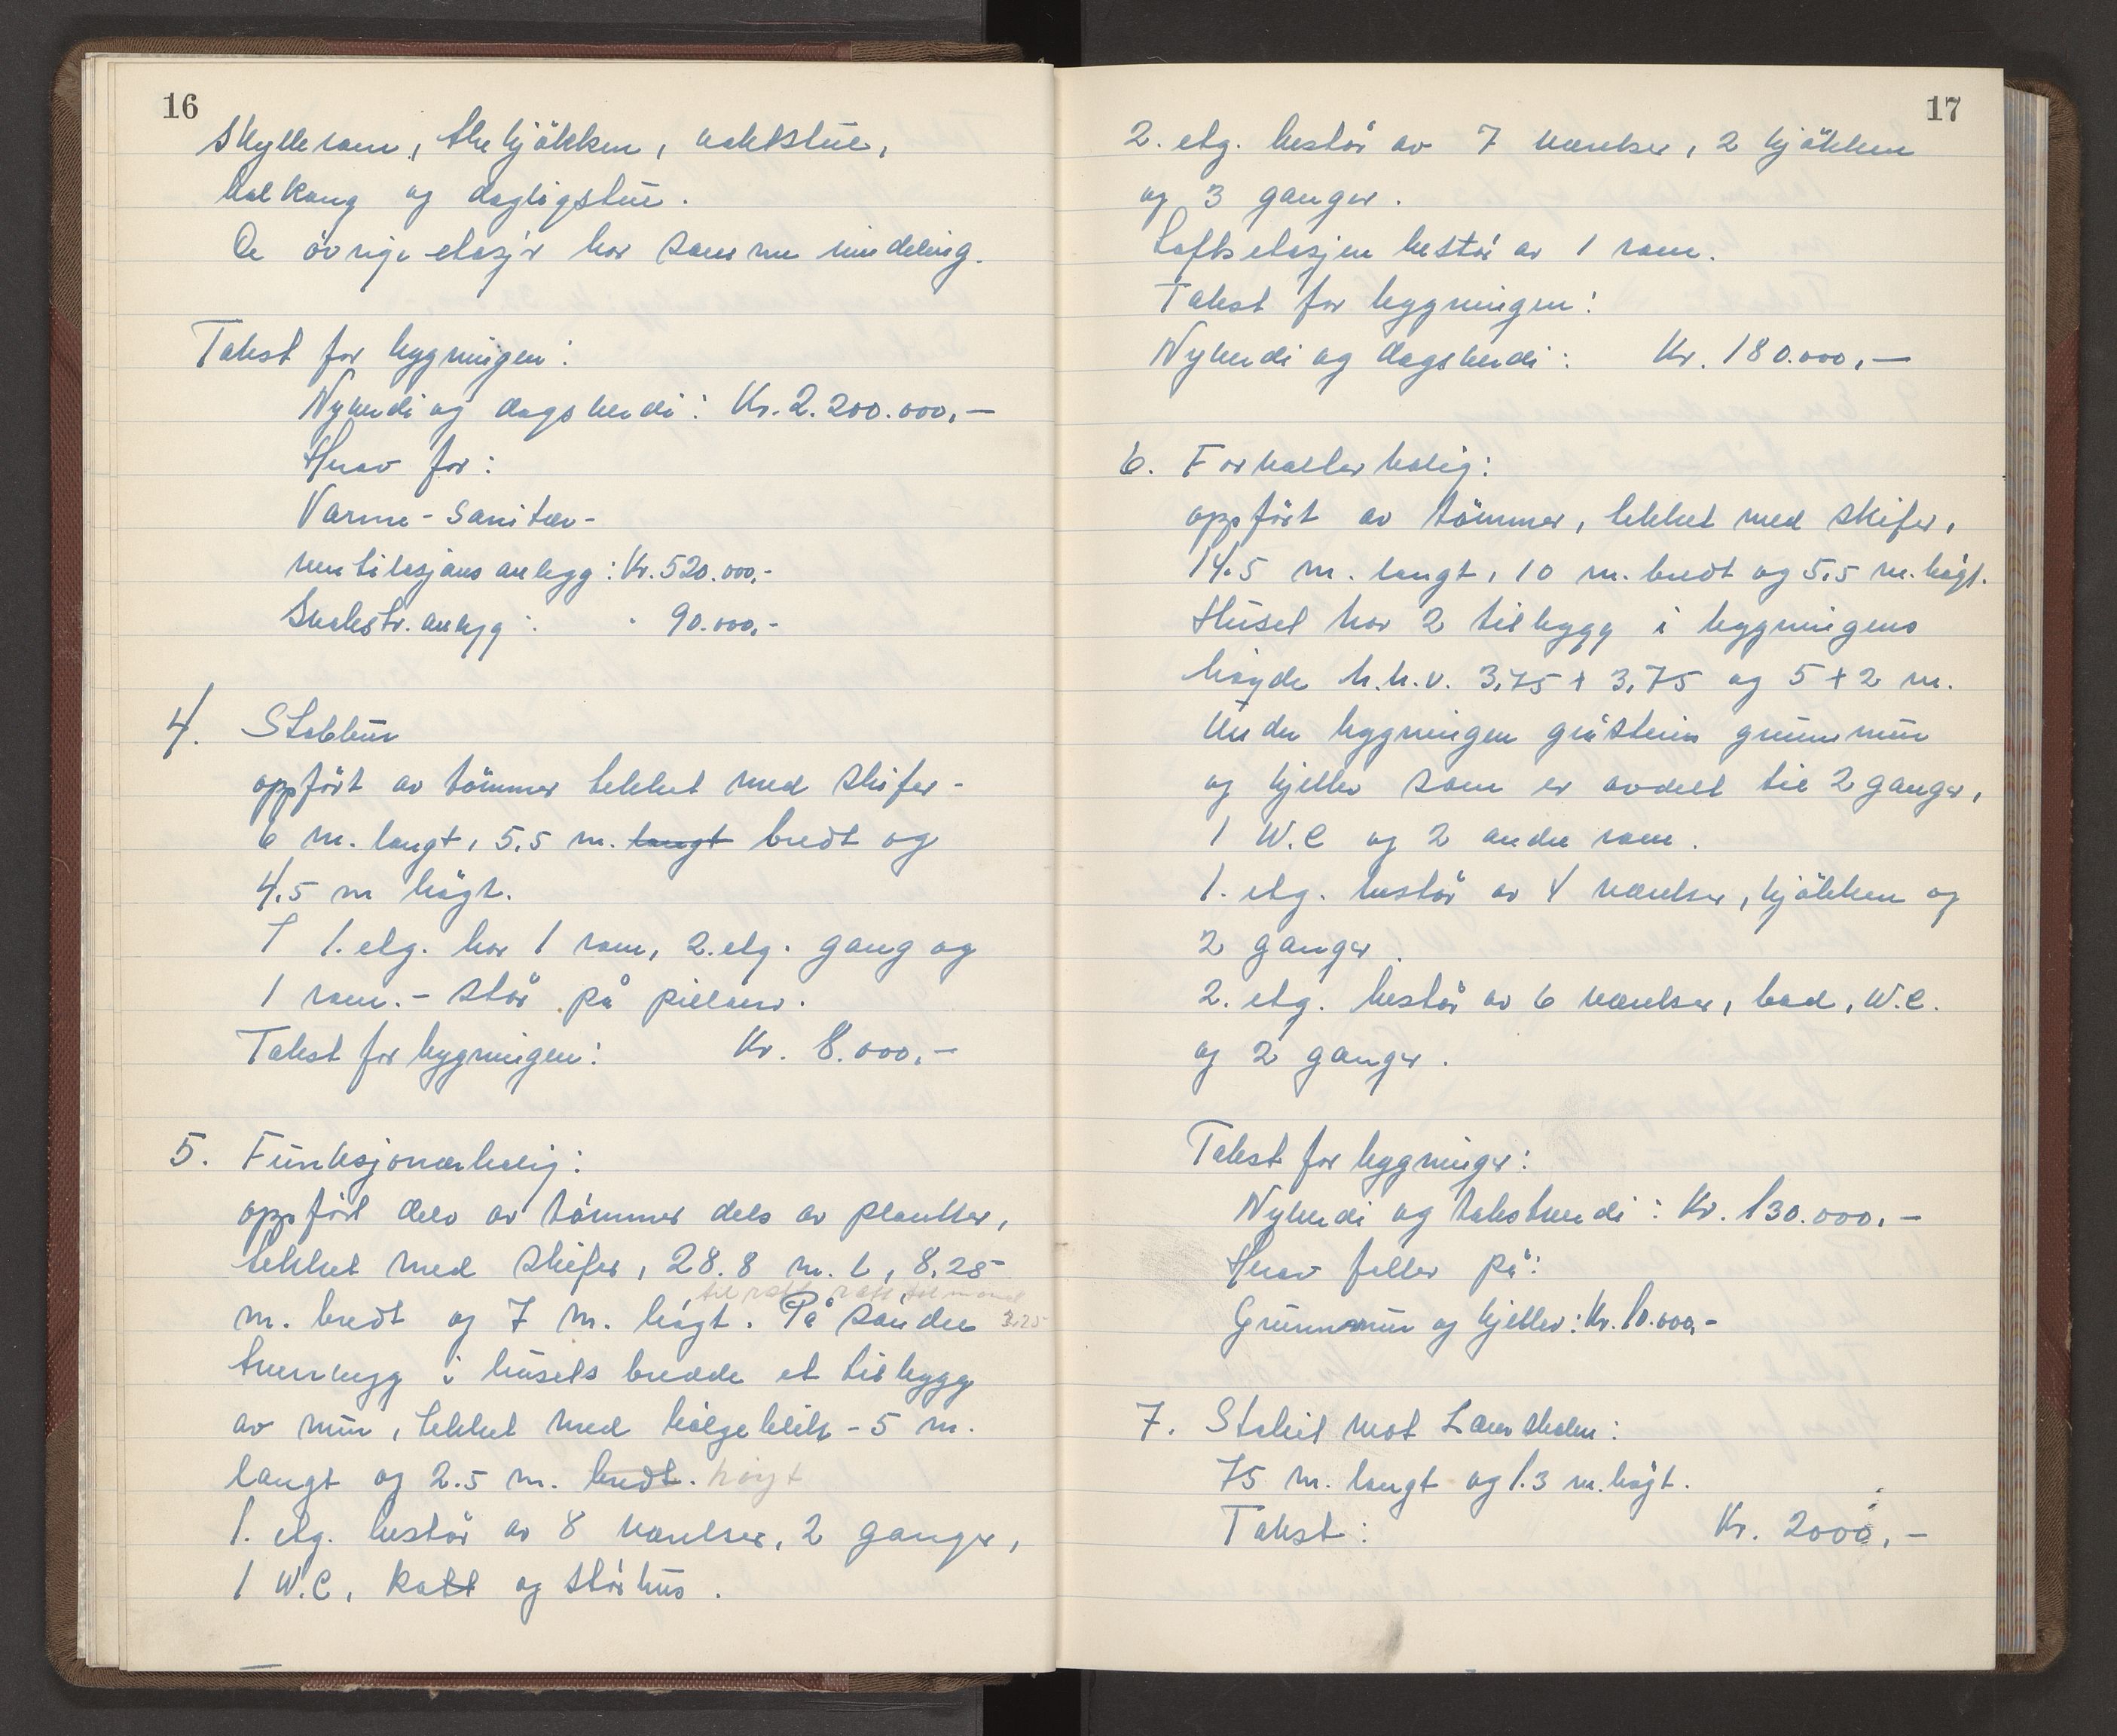 16
Skyllerom, thekjökken, vaktstue,
balkong og dagligstue.
De övrige etasjer har samme inndeling.
Takst for bygningen:
Nyverdi og dagsverdi: Kr. 2.200.000,—
Herav for:
Varme-sanitær-
ventilasjonsanlegg: Kr. 520.000,-
Svakstr. anlegg: " 90.000,-
4. Stabbur
oppfört av tömmer tekket med skifer-
6 m. langt, 5,5 m. langt bredt og
4,5 m högt.
I 1. etg. har 1 rom, 2. etg. gang og
1 rom. - står på pilarer.
Takst for bygningen: Kr. 8.000,—
5. Funksjonærbolig:
oppfört dels av tömmer dels av planker,
tekket med skifer, 28.8 m. l, 8,25
til raft
m. bredt og 7 m. högt. På söndre 3.25
tverrvegg i husets bredde et tilbygg
av mur, tekket med bölgeblikk - 5 m.
langt og 2.5 m. bredt. höyt
1. etg. består av 8 værelser, 2 ganger,
1 W.C, kott og störhus.
17
2. etg. består av 7 værelser, 2 kjökken
og 3 ganger.
Loftsetasjen består av 1 rom.
Takst for bygningen:
Nyverdi og dagsverdi: Kr. 180.000,—
6. Forvalterbolig:
oppfört av tömmer, tekket med skifer,
14.5 m. langt, 10 m. bredt og 5,5 m. högt.
Huset har 2 tilbygg i bygningens
höyde h.h.v. 3,75 + 3,75 og 5 + 2 m.
Under bygningen gråsteins grunnmur
og kjeller som er avdelt til 2 ganger,
1 W.C og 2 andre rom.
1. etg. består av 4 værelser, kjökken og
2 ganger.
2. etg. består av 6 værelser, bad, W.C.
og 2 ganger.
Takst for bygninger:
Nyverdi og takstverdi: Kr. 130.000,—
Herav faller på:
Grunnmur og kjeller: Kr. 10.000,-
7. Stakit mot Lærerskolen:
75 m. langt og 1.3 m. högt.
Takst: Kr. 2000,—